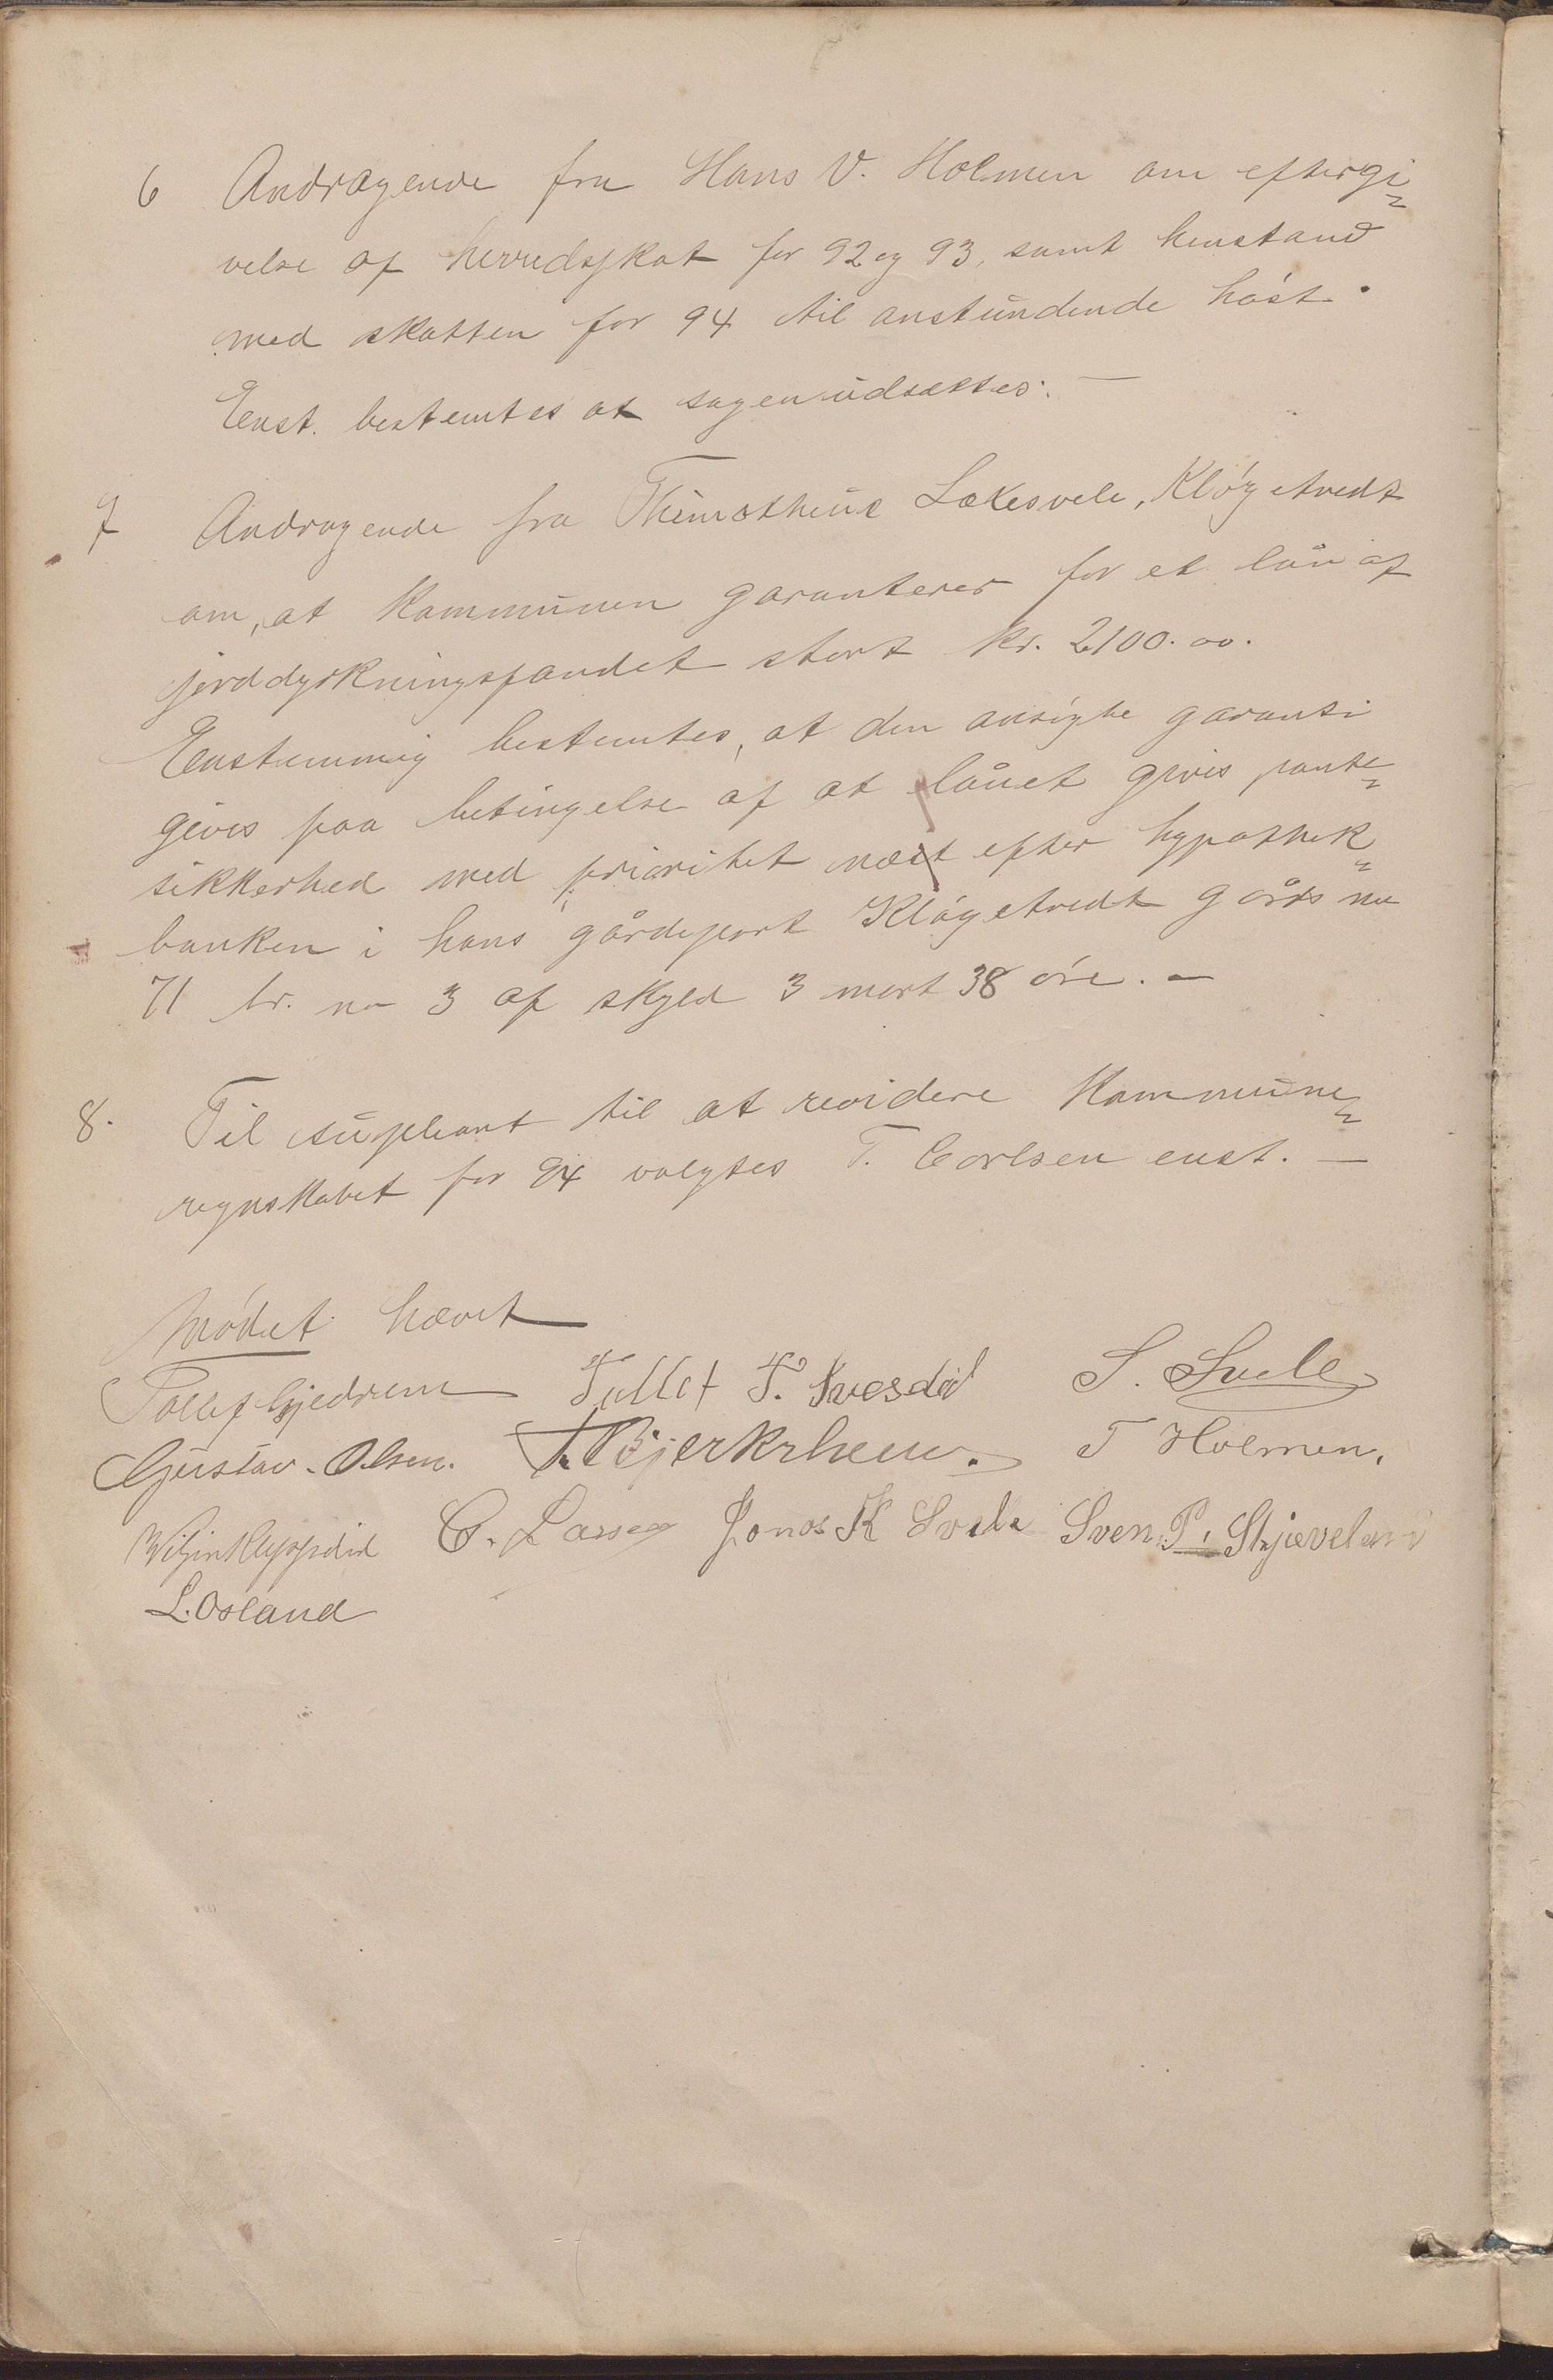 6 Andragende fra Hans V. Holmen om eftergi=
velse af herredsskat for 92 og 93, samt henstand
med skatten for 94 til anstundende høst.
Enst. bestemtes at sagen udsættes. —
7 Andragende fra Thimotheus Lakesvele, Kløgetvedt
om, at Kommunen garanterer for et lån af
jorddyrkningsfondet stort kr. 2100.00.
Enstemmig bestemtes, at den ansøgte garanti
gives paa betingelse af at lånet gives pante=
sikkerhed med prioritet næst efter hypothek=
banken i hans gårdspart Kløgetvedt gårds no
71 br. no 3 af skyld 3 mark 38 øre. —
8. Til supleant til at revidere Kommune=
regnskabet for 94 valgtes T. Carlsen enst. —
Mødet hævet
Tollef Gjedrem Tollef T. Svesdal S. Svele
Gustav Olsen. T. Bjerkrheim. T Holmen.
C. Larsen Jonas K Svela Sven P. Skjæveland
L. Osland